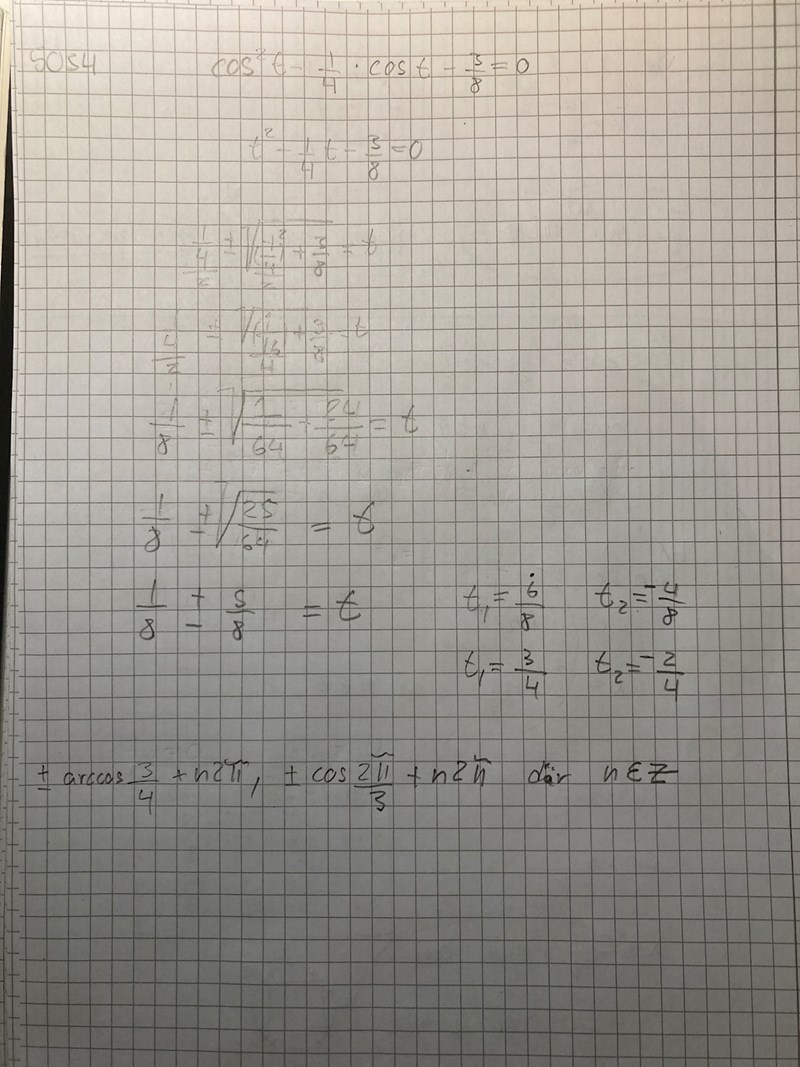 5054 cos²t - 1/4 · cos t - 3/8 = 0
t² - 1/4 t - 3/8 = 0
(1/4)/2 ± √(((1/4)/2)² + 3/8) = t
(1/4)/2 ± √((1/16)/4 + 3/8) = t
1/8 ± √(1/64 + 24/64) = t
1/8 ± √(25/64) = t
1/8 ± 5/8 = t t₁ = 6/8 t₂ = -4/8
t₁ = 3/4 t₂ = -2/4
± arccos 3/4 + n2π, ± cos 2π/3 + n2π där n∈Z